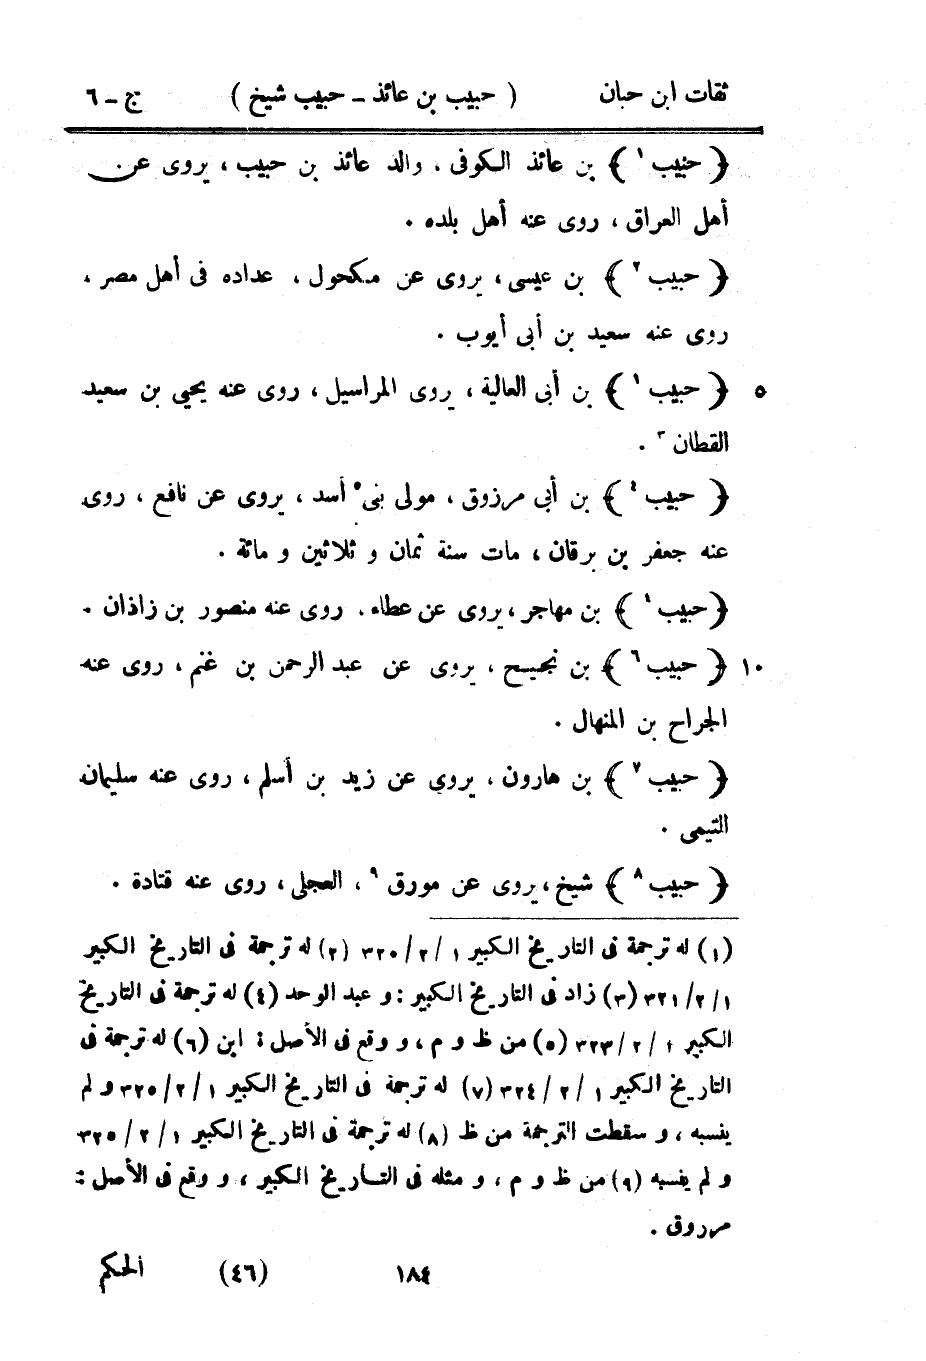 ثقات ابن حبان ( حبيب بن عائذ - حبيب شيخ ) ج - ٦
﴿ حبيب ١ ﴾ بن عائذ الكوفى ، والد عائذ بن حبيب ، يروى عن
أهل العراق ، روى عنه أهل بلده .
﴿ حبيب ٢ ﴾ بن عيسى ، يروى عن مكحول ، عداده فى أهل مصر ،
روى عنه سعيد بن أبى أيوب .
﴿ حبيب ١ ﴾ بن أبى العالية ، يروى المراسيل ، روى عنه يحيى بن سعيد ٥
القطان ٣ .
﴿ حبيب ٤ ﴾ بن أبى مرزوق ، مولى بنى ٥ أسد ، يروى عن نافع ، روى
عنه جعفر بن برقان ، مات سنة ثمان و ثلاثين و مائة .
﴿ حبيب ١ ﴾ بن مهاجر ، يروى عن عطاء . روى عنه منصور بن زاذان .
﴿ حبيب ٦ ﴾ بن نجيح ، يروى عن عبد الرحمن بن غنم ، روى عنه ١٠
الجراح بن المنهال .
﴿ حبيب ٧ ﴾ بن هارون ، يروى عن زيد بن أسلم ، روى عنه سليمان
التيمى .
﴿ حبيب ٨ ﴾ شيخ ، يروى عن مورق ٩ ، العجلى ، روى عنه قتادة .
(١) له ترجمة فى التاريخ الكبير ١ / ٢ / ٣٢٠ (٢) له ترجمة فى التاريخ الكبير
١ / ٢ / ٣٢١ (٣) زاد فى التاريخ الكبير : و عبد الوحد (٤) له ترجمة فى التاريخ
الكبير ١ / ٢ / ٣٢٣ (٥) من ظ و م ، و وقع فى الأصل : ابن (٦) له ترجمة فى
التاريخ الكبير ١ / ٢ / ٣٢٤ (٧) له ترجمة فى التاريخ الكبير ١ / ٢ / ٣٢٥ و لم
ينسبه ، و سقطت الترجمة من ظ (٨) له ترجمة فى التاريخ الكبير ١ / ٢ / ٣٢٥
و لم ينسبه (٩) من ظ و م ، و مثله فى التاريخ الكبير ، و وقع فى الأصل :
مرروق .
١٨٤ (٤٦) الحكم